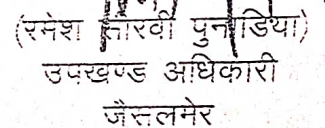 (रमेश सीरवी पुनाडिया)
उपखण्ड अधिकारी
जैसलमेर